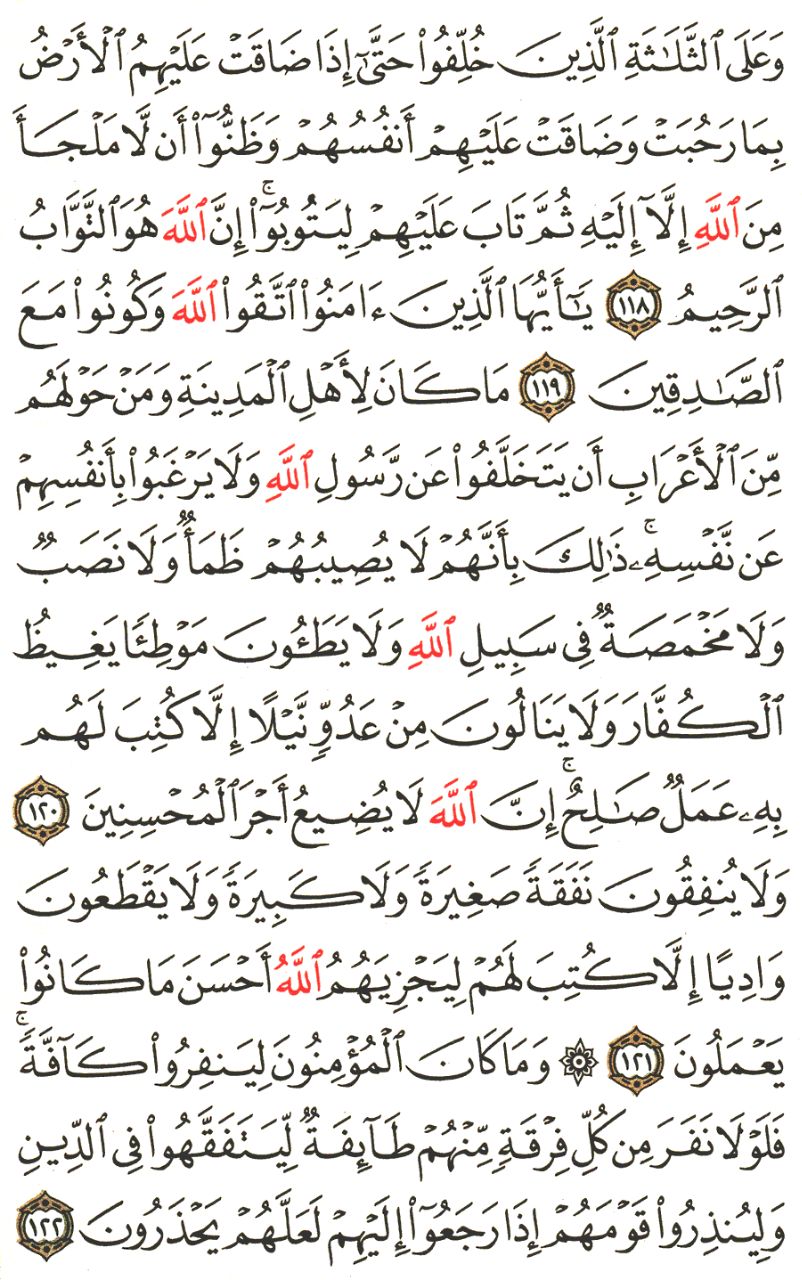 وَعَلَى ٱلثَّلَـٰثَةِ ٱلَّذِينَ خُلِّفُوا۟ حَتَّىٰٓ إِذَا ضَاقَتْ عَلَيْهِمُ ٱلْأَرْضُ
بِمَا رَحُبَتْ وَضَاقَتْ عَلَيْهِمْ أَنفُسُهُمْ وَظَنُّوٓا۟ أَن لَّا مَلْجَأَ
مِنَ ٱللَّهِ إِلَّآ إِلَيْهِ ثُمَّ تَابَ عَلَيْهِمْ لِيَتُوبُوٓا۟ ۚ إِنَّ ٱللَّهَ هُوَ ٱلتَّوَّابُ
ٱلرَّحِيمُ ١١٨ يَـٰٓأَيُّهَا ٱلَّذِينَ ءَامَنُوا۟ ٱتَّقُوا۟ ٱللَّهَ وَكُونُوا۟ مَعَ
ٱلصَّـٰدِقِينَ ١١٩ مَا كَانَ لِأَهْلِ ٱلْمَدِينَةِ وَمَنْ حَوْلَهُم
مِّنَ ٱلْأَعْرَابِ أَن يَتَخَلَّفُوا۟ عَن رَّسُولِ ٱللَّهِ وَلَا يَرْغَبُوا۟ بِأَنفُسِهِمْ
عَن نَّفْسِهِۦ ۚ ذَٰلِكَ بِأَنَّهُمْ لَا يُصِيبُهُمْ ظَمَأٌ وَلَا نَصَبٌ
وَلَا مَخْمَصَةٌ فِى سَبِيلِ ٱللَّهِ وَلَا يَطَـُٔونَ مَوْطِئًا يَغِيظُ
ٱلْكُفَّارَ وَلَا يَنَالُونَ مِنْ عَدُوٍّ نَّيْلًا إِلَّا كُتِبَ لَهُم
بِهِۦ عَمَلٌ صَـٰلِحٌ ۚ إِنَّ ٱللَّهَ لَا يُضِيعُ أَجْرَ ٱلْمُحْسِنِينَ ١٢٠
وَلَا يُنفِقُونَ نَفَقَةً صَغِيرَةً وَلَا كَبِيرَةً وَلَا يَقْطَعُونَ
وَادِيًا إِلَّا كُتِبَ لَهُمْ لِيَجْزِيَهُمُ ٱللَّهُ أَحْسَنَ مَا كَانُوا۟
يَعْمَلُونَ ١٢١ ۞ وَمَا كَانَ ٱلْمُؤْمِنُونَ لِيَنفِرُوا۟ كَآفَّةً ۚ
فَلَوْلَا نَفَرَ مِن كُلِّ فِرْقَةٍ مِّنْهُمْ طَآئِفَةٌ لِّيَتَفَقَّهُوا۟ فِى ٱلدِّينِ
وَلِيُنذِرُوا۟ قَوْمَهُمْ إِذَا رَجَعُوٓا۟ إِلَيْهِمْ لَعَلَّهُمْ يَحْذَرُونَ ١٢٢